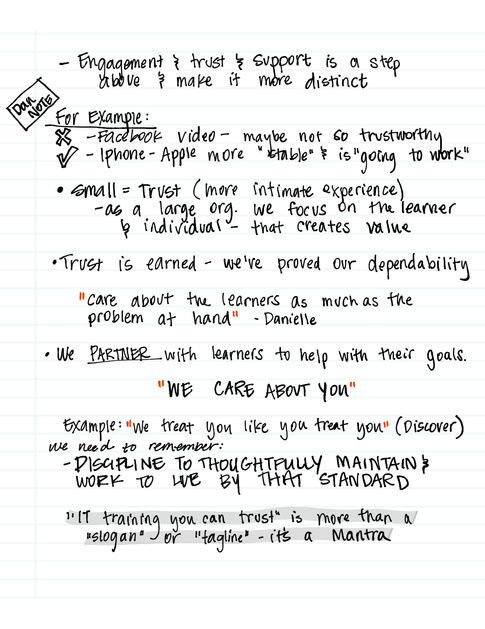 - Engagement & trust & support is a step
above & make it more distinct
Dan NOTE
For Example:
- Facebook video - maybe not so trustworthy
- Iphone - Apple more "stable" & is "going to work"
• small = Trust (more intimate experience)
- as a large org. we focus on the learner
& individual - that creates value
• Trust is earned - we've proved our dependability
"care about the learners as much as the
problem at hand" - Danielle
• We PARTNER with learners to help with their goals.
"WE CARE ABOUT YOU"
Example: "We treat you like you treat you" (Discover)
we need to remember:
- DISCIPLINE TO THOUGHTFULLY MAINTAIN &
WORK TO LIVE BY THAT STANDARD
"IT training you can trust" is more than a
"slogan" or "tagline" - it's a Mantra